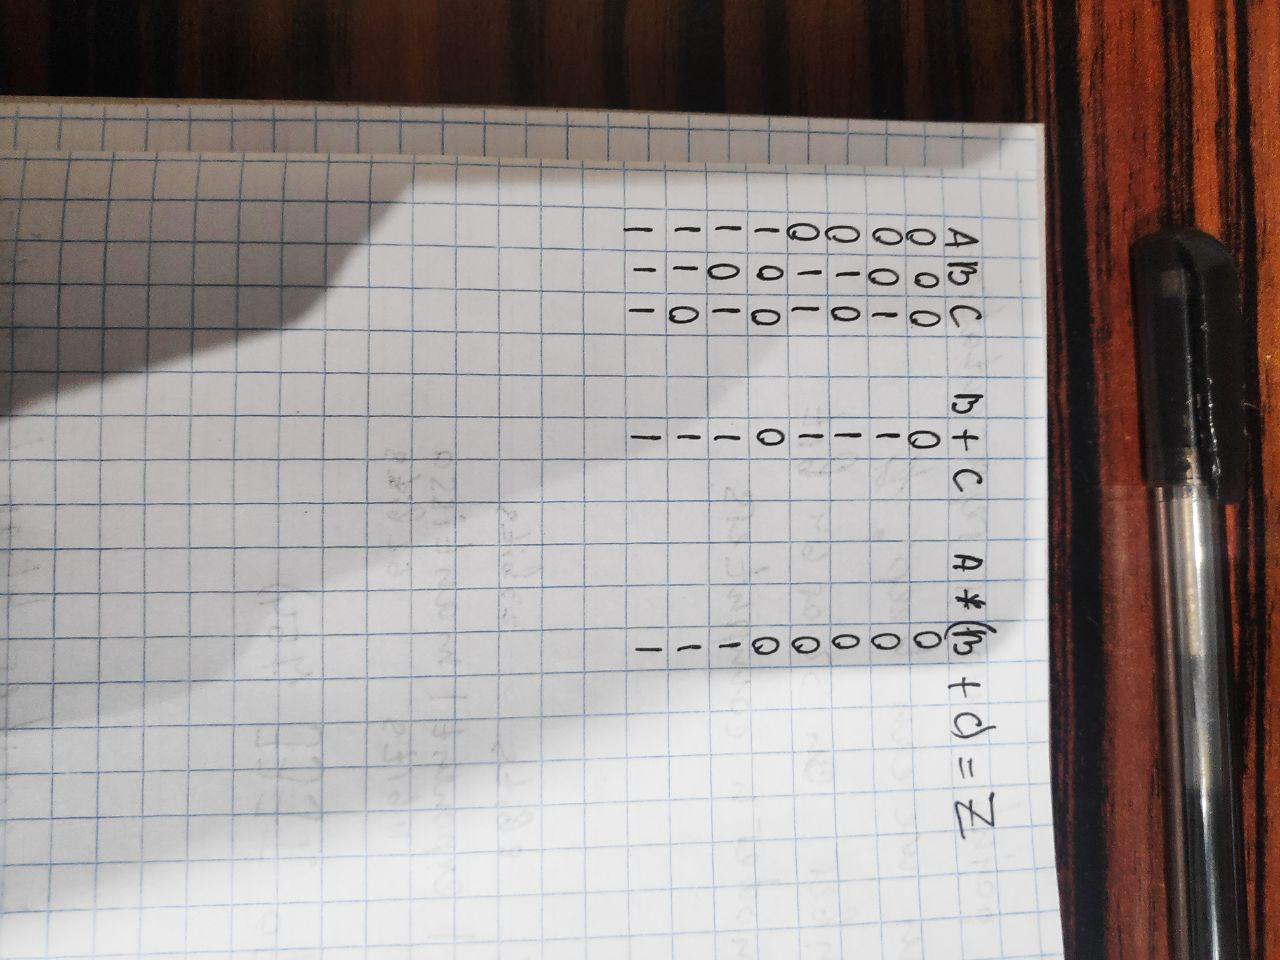 A B C B + C A * (B + C) = Z
0 0 0 0 0
0 0 1 1 0
0 1 0 1 0
0 1 1 1 0
1 0 0 0 0
1 0 1 1 1
1 1 0 1 1
1 1 1 1 1